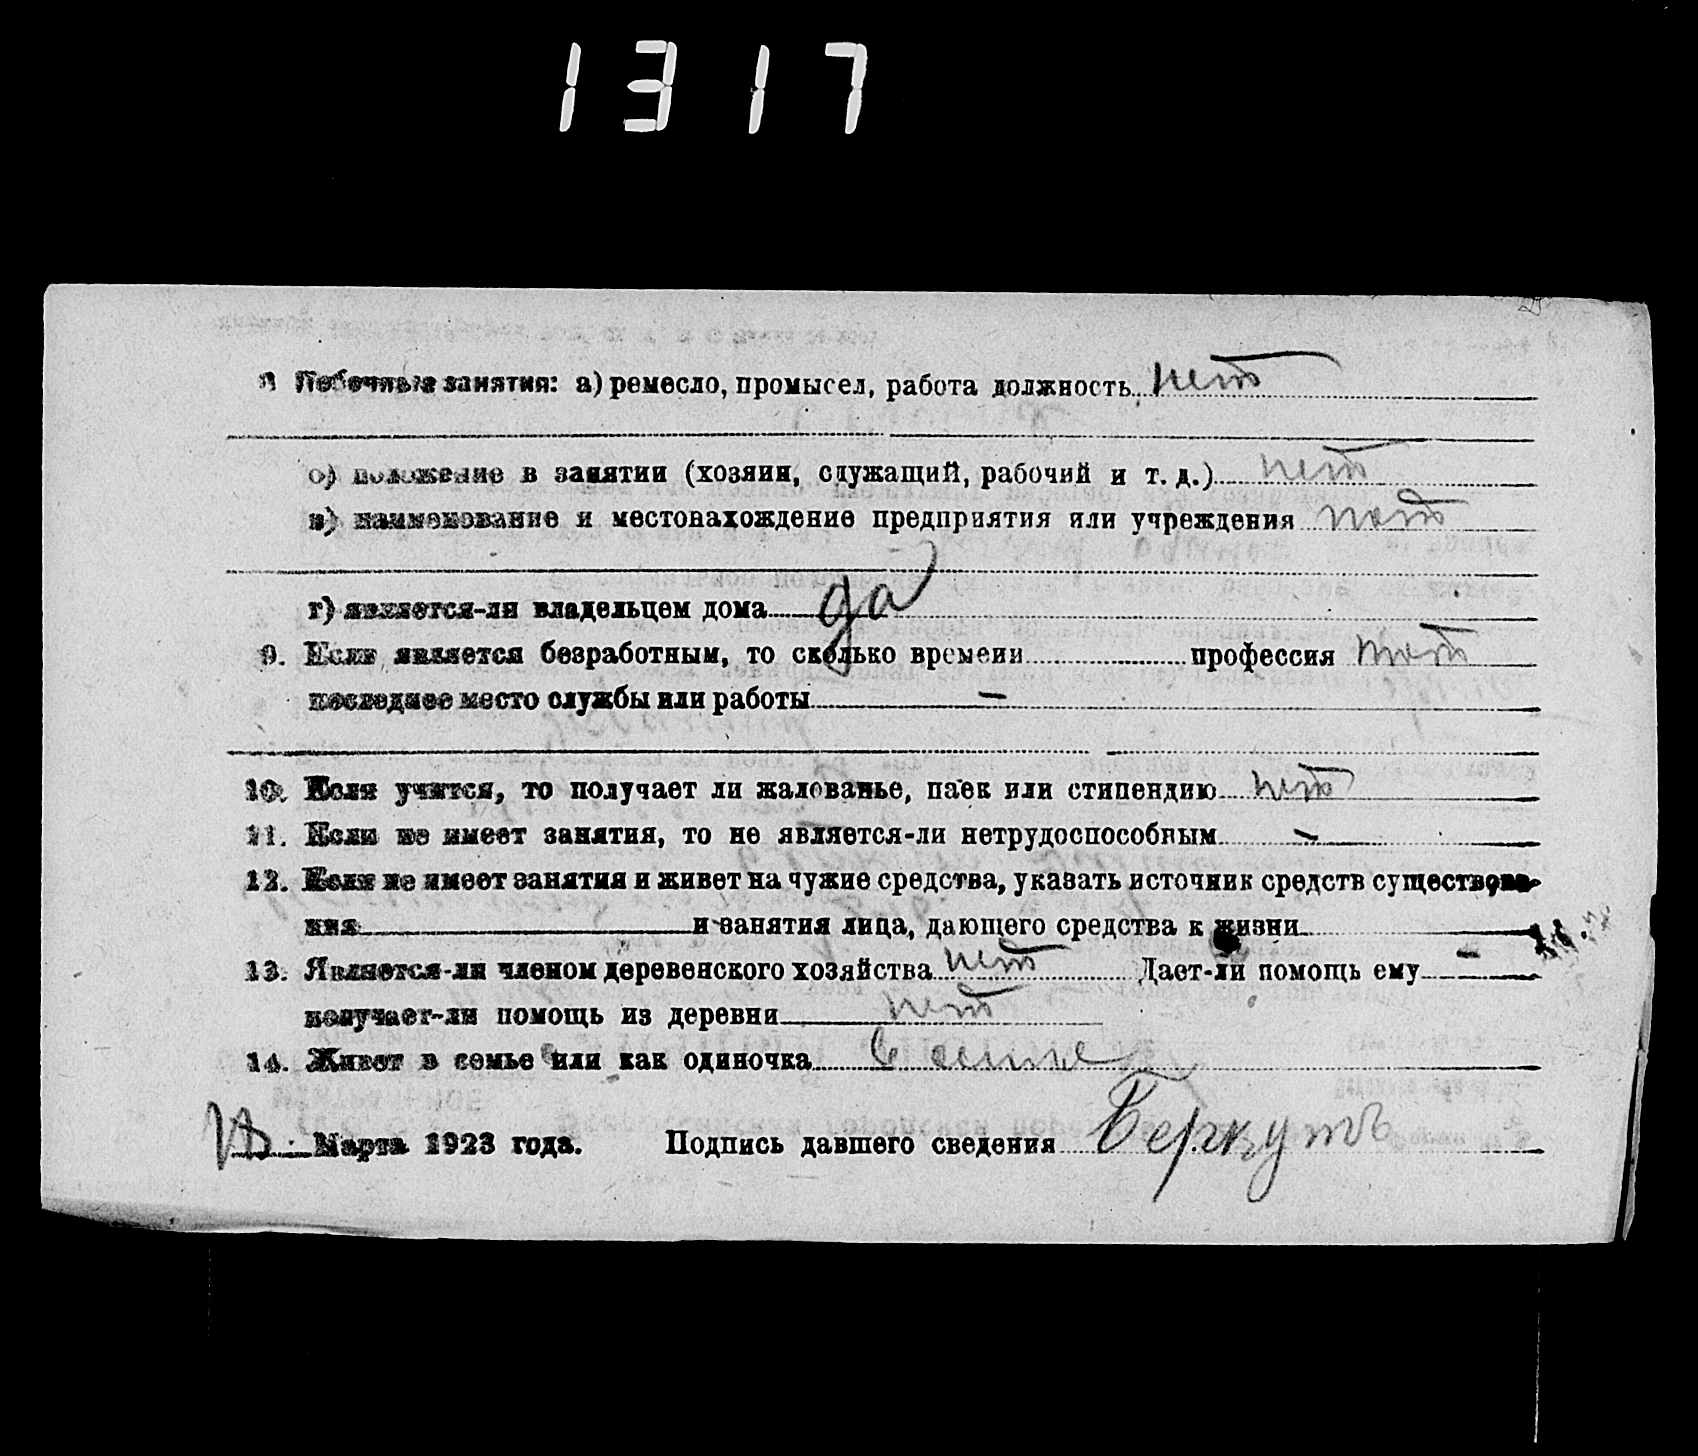 1317
8 Побочные занятия: а) ремесло, промысел, работа должность нет
б) положение в занятии (хозяин, служащий, рабочий и т. д.) нет
в) наименование и местонахождение предприятия или учреждения нет
г) является-ли владельцем дома да
9. Если является безработным, то сколько времени профессия нет
последнее место службы или работы —
10. Если учится, то получает ли жалованье, паек или стипендию нет
11. Если не имеет занятия, то не является-ли нетрудоспособным —
12. Если не имеет занятия и живет на чужие средства, указать источник средств существова-
ния и занятия лица, дающего средства к жизни
13. Является-ли членом деревенского хозяйства нет Дает-ли помощь ему —
получает-ли помощь из деревни нет
14. Живет в семье или как одиночка в семье
Марта 1923 года. Подпись давшего сведения Беркутъ